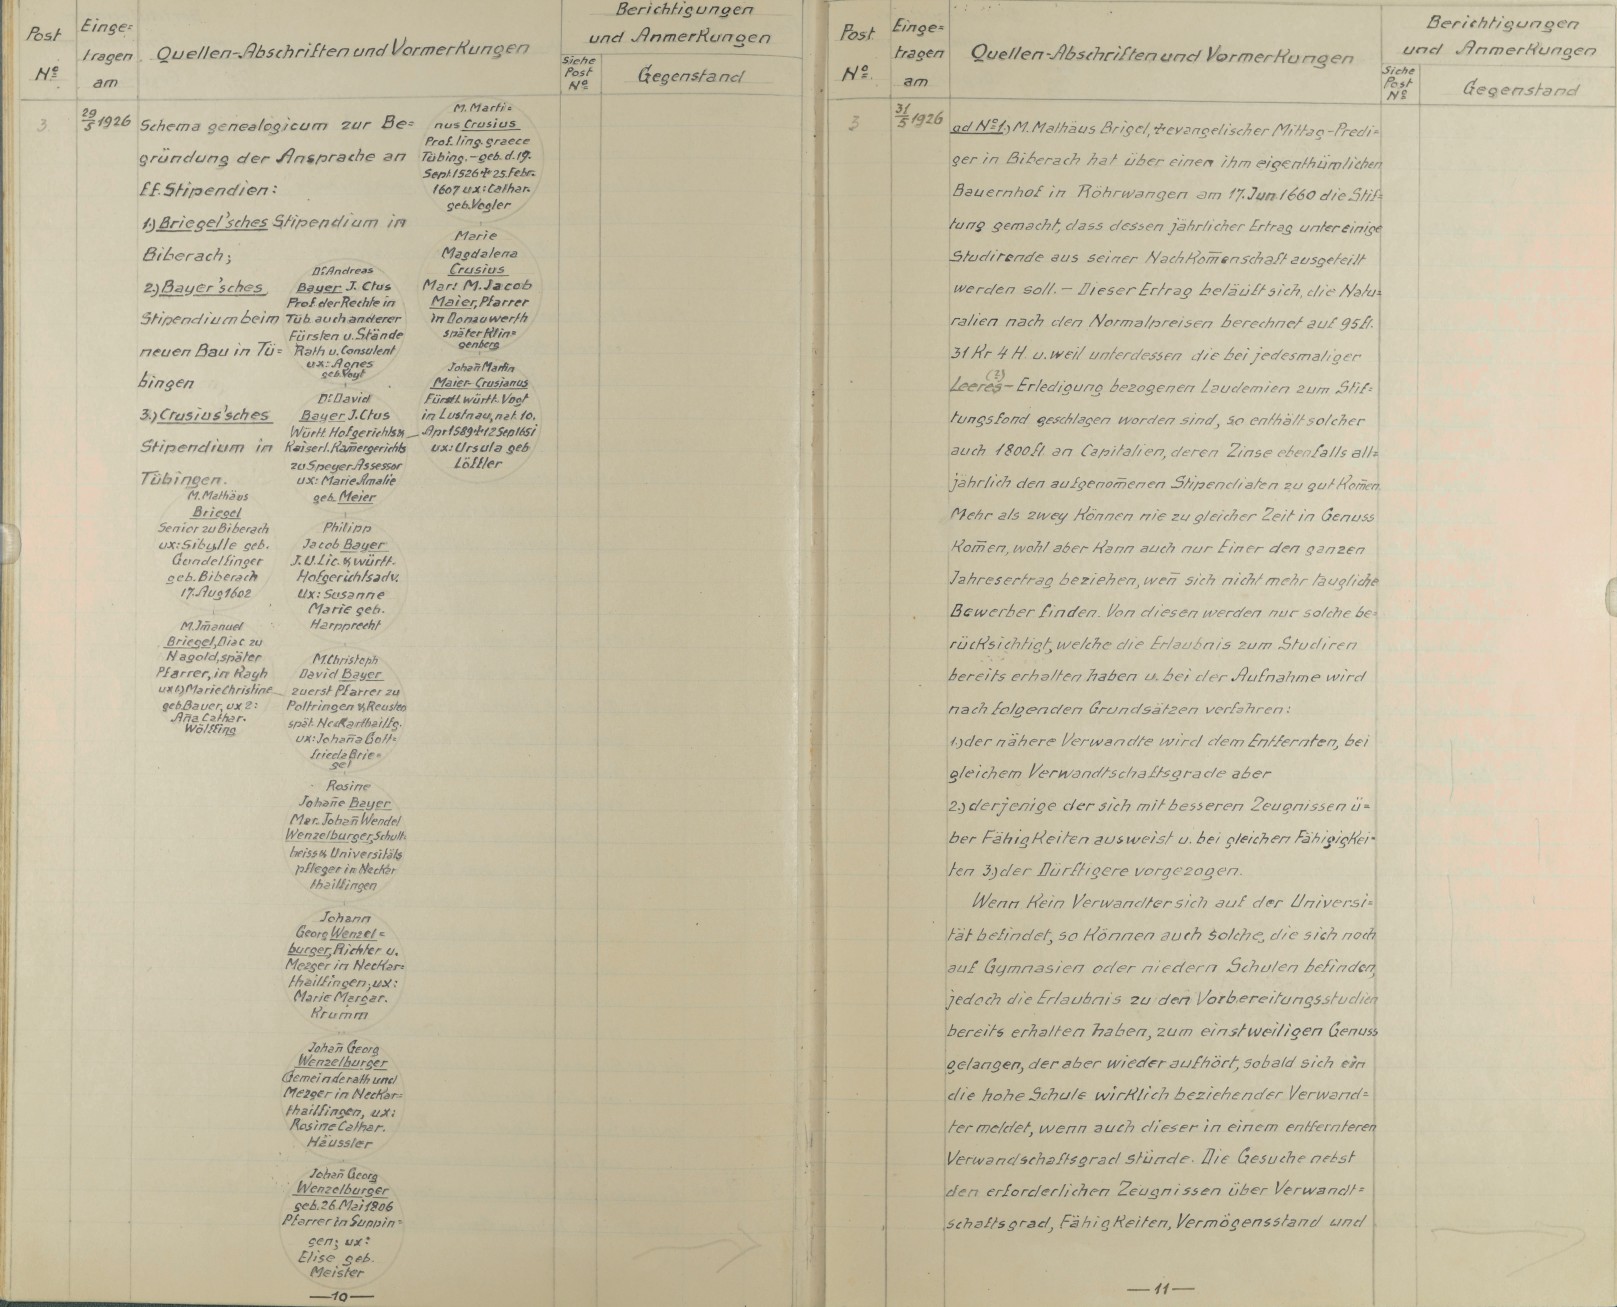 Post
Nº
Einge=
tragen
am
Quellen-Abschriften und Vormerkungen
Berichtigungen
und Anmerkungen
Siehe
Post
Nº
Gegenstand
3
29/5 1926
Schema genealogicum zur Be=
gründung der Ansprache an
ff. Stipendien:
1.) Briegel'sches Stipendium in
Biberach;
2.) Bayer'sches
Stipendium beim
neuen Bau in Tü=
bingen
3.) Crusius'sches
Stipendium in
Tübingen.
M. Marti=
nus Crusius
Prof. ling. graece
Tübing. - geb. d. 19.
Sept. 1526 + 25. Febr.
1607 ux: Cathar.
geb. Vegler
Marie
Magdalena
Crusius
Mar: M. Jacob
Maier, Pfarrer
in Donauwerth
später Klin=
genberg
Johan̄ Martin
Maier-Crusianus
Fürstl. württ. Vogt
in Lustnau, nat. 10.
Apr 1589 + 12 Sep 1651
ux: Ursula geb
Löffler
Dr. Andreas
Bayer J. Ctus
Prof. der Rechte in
Tüb. auch anderer
Fürsten u. Stände
Rath u. Consulent
ux: Agnes
geb. Vogt
Dr. David
Bayer J. Ctus
Württ. Hofgerichts &
Kaiserl. Kam̄ergerichts
zu Speyer Assessor
ux: Marie Amalie
geb. Meier
Philipp
Jacob Bayer
J. U. Lic. & württ.
Hofgerichtsadv.
Ux: Susanne
Marie geb.
Harpprecht
M. Christoph
David Bayer
zuerst Pfarrer zu
Poltringen & Reusten
spät. Neckarthailfg.
ux: Johan̄a Gott=
frieda Brie=
gel
Rosine
Johan̄e Bayer
Mar. Johan̄ Wendel
Wenzelburger, Schult=
heiss & Universitäts
pfleger in Neckar
thailfingen
Johann
Georg Wenzel=
burger, Richter u.
Mezger in Neckar=
thailfingen, ux:
Marie Margar.
Krumm
Johan̄ Georg
Wenzelburger
Gemeinderath und
Mezger in Neckar=
thailfingen, ux:
Rosine Cathar.
Häussler
Johan̄ Georg
Wenzelburger
geb. 26. Mai 1806
Pfarrer in Suppin=
gen; ux:
Elise geb.
Meister
M. Mathäus
Briegel
Senior zu Biberach
ux: Sibylle geb.
Gondelfinger
geb. Biberach
17. Aug 1602
M. Im̄anuel
Briegel, Diac zu
Nagold, später
Pfarrer, in Kayh
ux 1.) Marie Christine
geb. Bauer, ux 2:
An̄a Cathar.
Wölffing
—10—
Post
Nº
Einge=
tragen
am
Quellen-Abschriften und Vormerkungen
Berichtigungen
und Anmerkungen
Siehe
Post
Nº
Gegenstand
3
31/5 1926
ad Nº 1.) M. Mathäus Brigel, + evangelischer Mittag-Predi=
ger in Biberach hat über einen ihm eigenthümlichen
Bauernhof in Röhrwangen am 17. Jun 1660 die Stif=
tung gemacht, dass dessen jährlicher Ertrag unter einige
Studirende aus seiner Nachkom̄enschaft ausgeteilt
werden soll. — Dieser Ertrag beläuft sich, die Natu=
ralien nach den Normalpreisen berechnet auf 95 fl.
31 Kr 4 H. u. weil unterdessen die bei jedesmaliger
Leeres (?) - Erledigung bezogenen Laudemien zum Stif=
tungsfond geschlagen worden sind, so enthält solcher
auch 1800 fl an Capitalien, deren Zinse ebenfalls all=
jährlich den aufgenom̄enen Stipendiaten zu gut kom̄en,
Mehr als zwey können nie zu gleicher Zeit in Genuss
kom̄en, wohl aber kann auch nur Einer den ganzen
Jahresertrag beziehen, wen̄ sich nicht mehr taugliche
Bewerber finden. Von diesen werden nur solche be=
rücksichtigt, welche die Erlaubnis zum Studiren
bereits erhalten haben u. bei der Aufnahme wird
nach folgenden Grundsätzen verfahren:
1.) der nähere Verwandte wird dem Entfernten, bei
gleichem Verwandtschaftsgrade aber
2.) derjenige der sich mit besseren Zeugnissen ü=
ber Fähigkeiten ausweist u. bei gleichen Fähigigkei=
ten 3.) der Dürftigere vorgezogen.
Wenn kein Verwandter sich auf der Universi=
tät befindet, so können auch solche, die sich noch
auf Gymnasien oder niedern Schulen befinden,
jedoch die Erlaubnis zu den Vorbereitungsstudien
bereits erhalten haben, zum einstweiligen Genuss
gelangen, der aber wieder aufhört, sobald sich ein
die hohe Schule wirklich beziehender Verwand=
ter meldet, wenn auch dieser in einem entfernteren
Verwandschaftsgrad stünde. Die Gesuche nebst
den erforderlichen Zeugnissen über Verwandt=
schaftsgrad, Fähigkeiten, Vermögensstand und
—11—